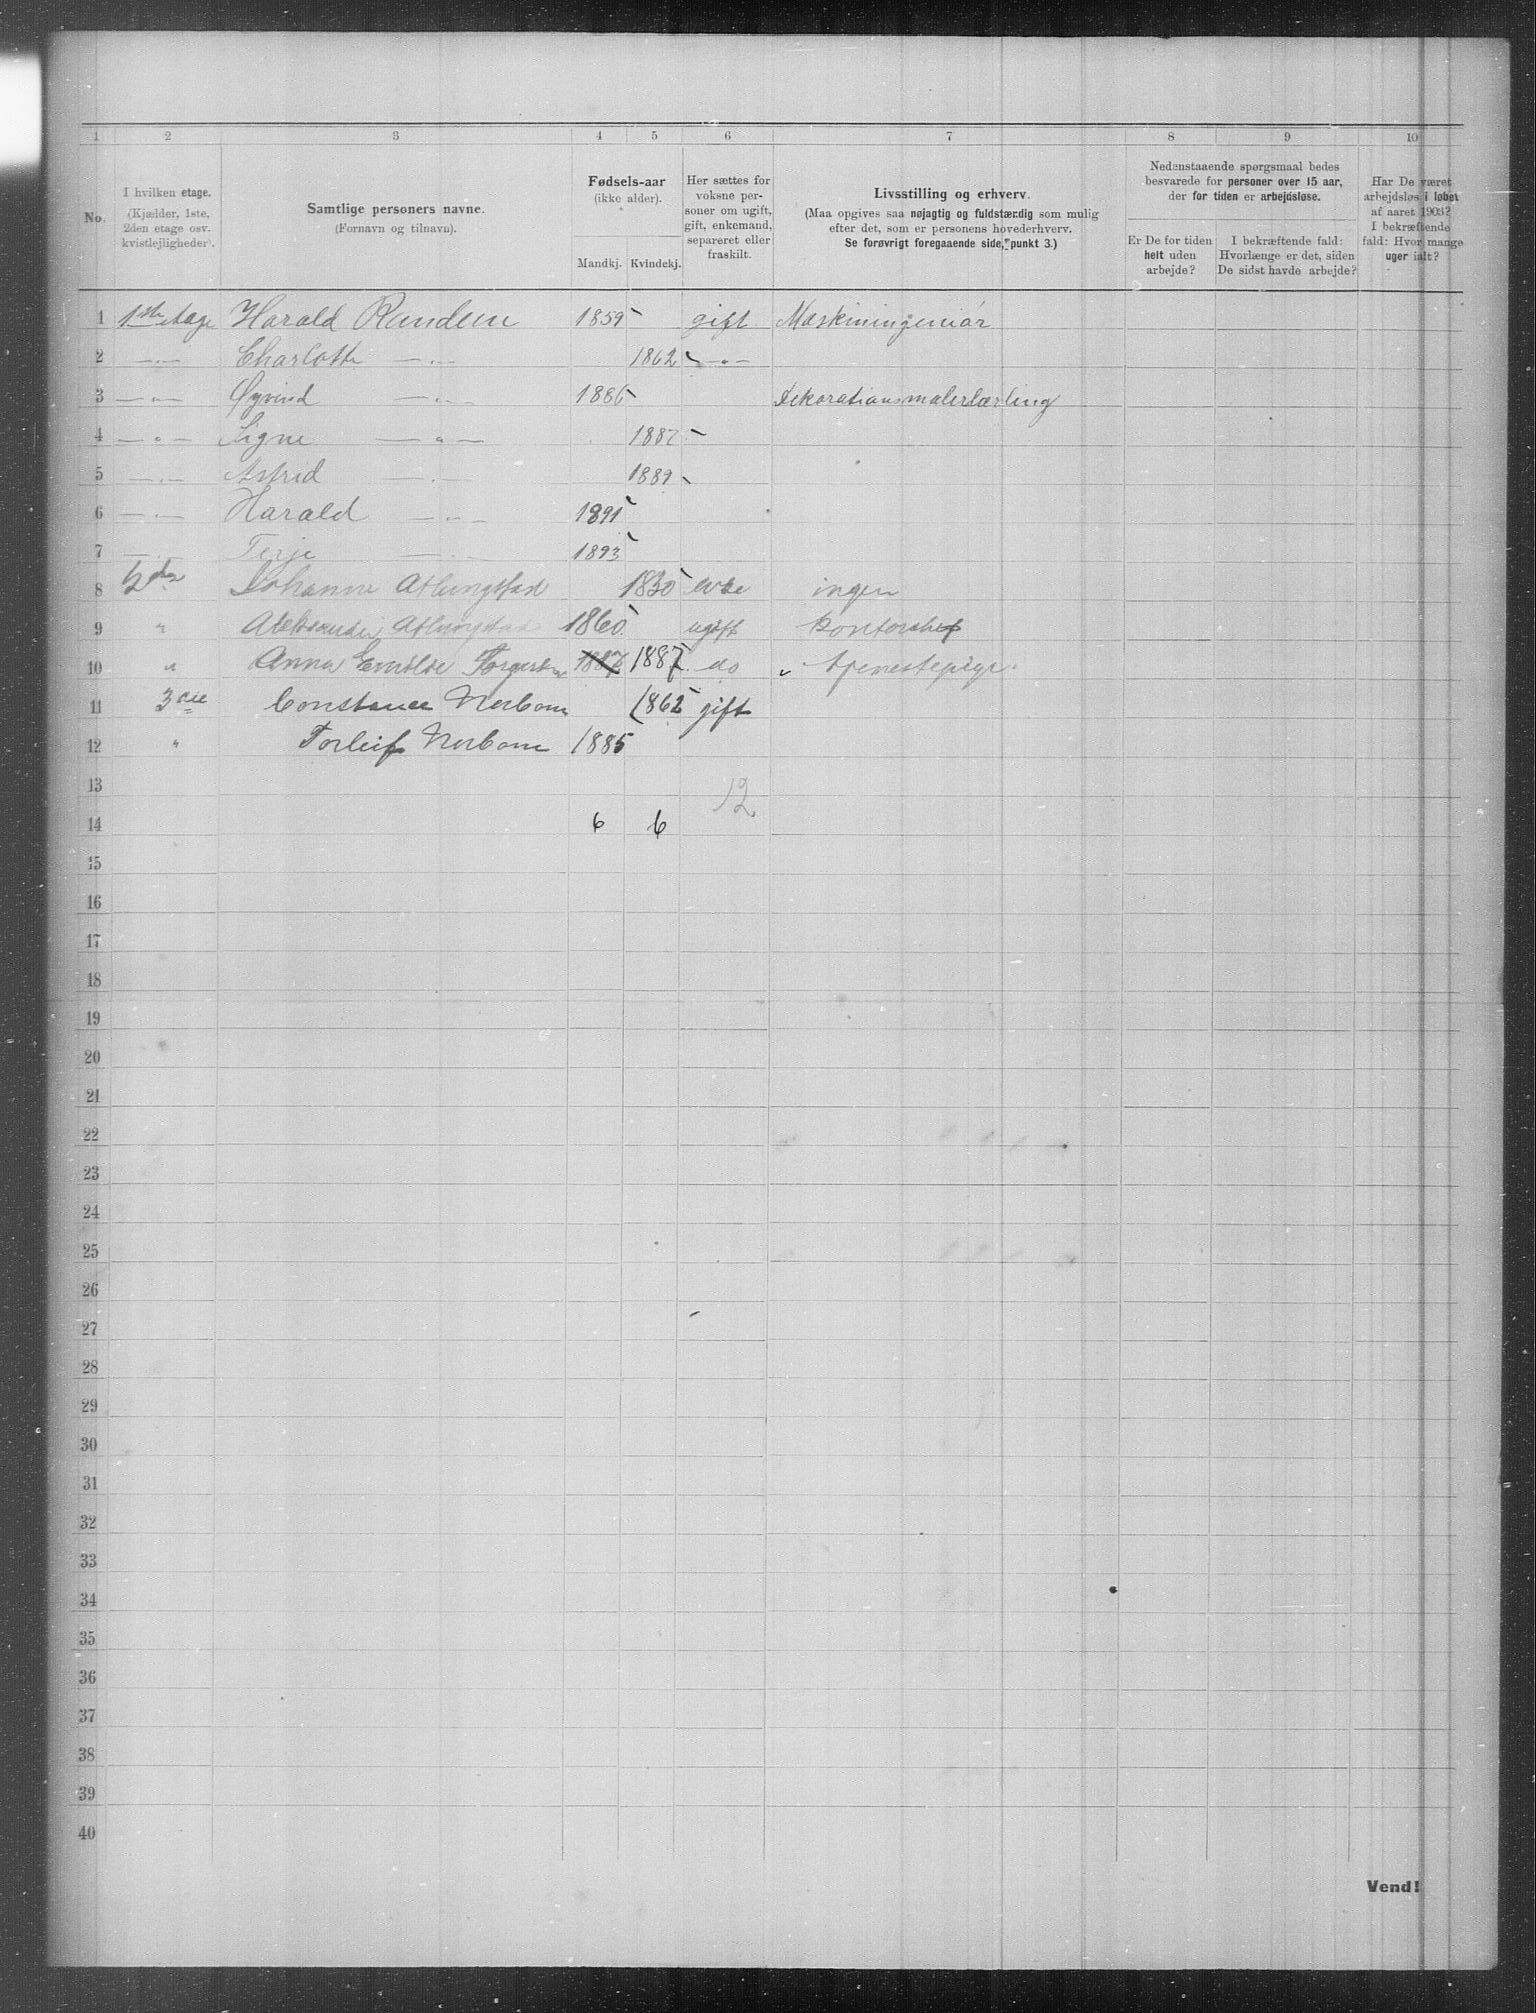 1 2 3 4 5 6 7 8 9 10
No.
I hvilken etage.
(Kjælder, 1ste,
2den etage osv.
kvistlejligheder).
Samtlige personers navne.
(Fornavn og tilnavn).
Fødsels-aar
(ikke alder).
Mandkj. Kvindekj.
Her sættes for
voksne per-
soner om ugift,
gift, enkemand,
separeret eller
fraskilt.
Livsstilling og erhverv.
(Maa opgives saa nøjagtig og fuldstændig som mulig
efter det, som er personens hovederhverv.
Se forøvrigt foregaaende side, punkt 3.)
Nedenstaaende spørgsmaal bedes
besvarede for personer over 15 aar,
der for tiden er arbejdsløse.
Er De for tiden
helt uden
arbejde?
I bekræftende fald:
Hvorlænge er det, siden
De sidst havde arbejde?
Har De været
arbejdsløs i løbet
af aaret 1903?
I bekræftende
fald: Hvor mange
uger ialt?
1 1ste etage Harald Randem 1859 gift Maskiningeniør
2 —"— Charlotte —"— 1862 —"—
3 —"— Øyvind —"— 1886 Dekorationsmalerlærling
4 —"— Signe —"— 1887
5 —"— Astrid —"— 1889
6 —"— Harald —"— 1891
7 —"— Terje —"— 1893
8 Johanne Atlungstad 1830 enke ingen
9 " Aleksander Atlungstad 1860 ugift Kontorchef
10 " Anna Emilie 1887 1887 do Tjenestepige
11 3die Constance Norbom 1862 gift
12 " Torleif Norbom 1885
13 12
14 6 6
15
16
17
18
19
20
21
22
23
24
25
26
27
28
29
30
31
32
33
34
35
36
37
38
39
40
Vend!